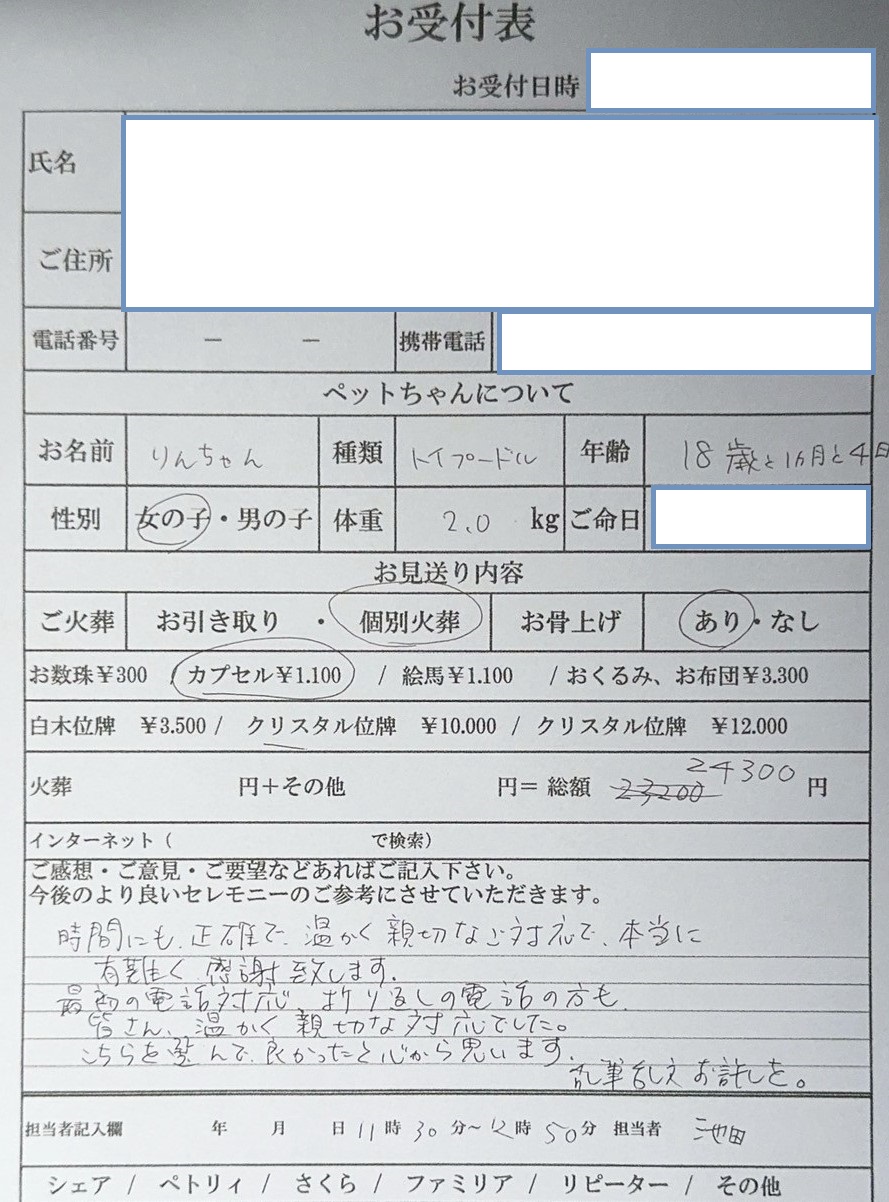 お受付表
お受付日時
氏名
ご住所
電話番号 － － 携帯電話
ペットちゃんについて
お名前 りんちゃん 種類 トイプードル 年齢 18歳と1ヵ月と4日
性別 女の子・男の子 体重 2.0 kg ご命日
お見送り内容
ご火葬 お引き取り ・ 個別火葬 お骨上げ あり・なし
お数珠¥300 / カプセル¥1.100 / 絵馬¥1.100 / おくるみ、お布団¥3.300
白木位牌 ¥3.500 / クリスタル位牌 ¥10.000 / クリスタル位牌 ¥12.000
火葬 円＋その他 円＝ 総額 23200 24300 円
インターネット（ で検索）
ご感想・ご意見・ご要望などあればご記入下さい。
今後のより良いセレモニーのご参考にさせていただきます。
時間にも、正確で、温かく親切なご対応で、本当に
有難く感謝致します。
最初の電話対応、折り返しの電話の方も、
皆さん、温かく親切な対応でした。
こちらを選んで、良かったと心から思います。
乱筆乱文お許しを。
担当者記入欄 年 月 日 11時 30分～12時 50分 担当者 池田
シェア / ペトリィ / さくら / ファミリア / リピーター / その他